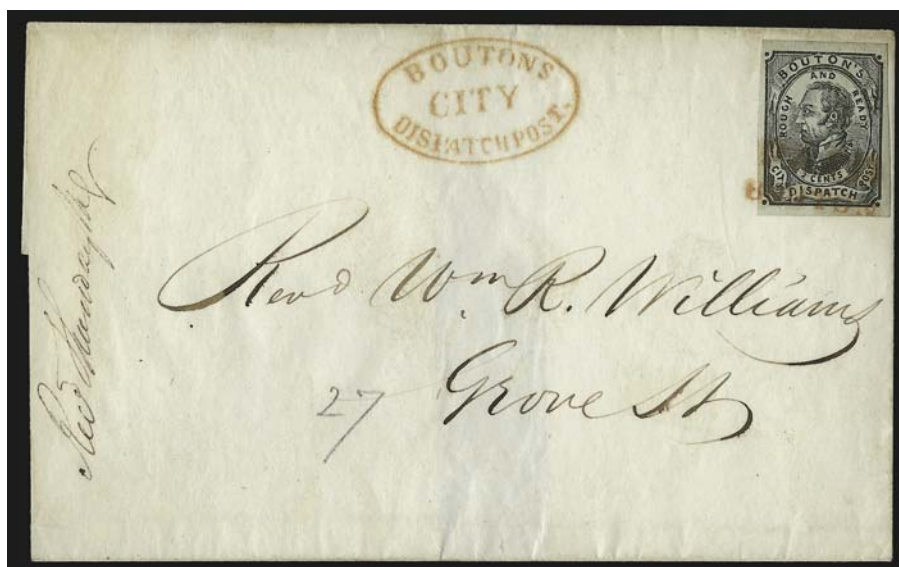 BOUTONS
CITY
DISPATCH POST.
BOUTON'S
ROUGH AND READY
2 CENTS
CITY DISPATCH POST
Revd. Wm R. Williams
27 Grove St